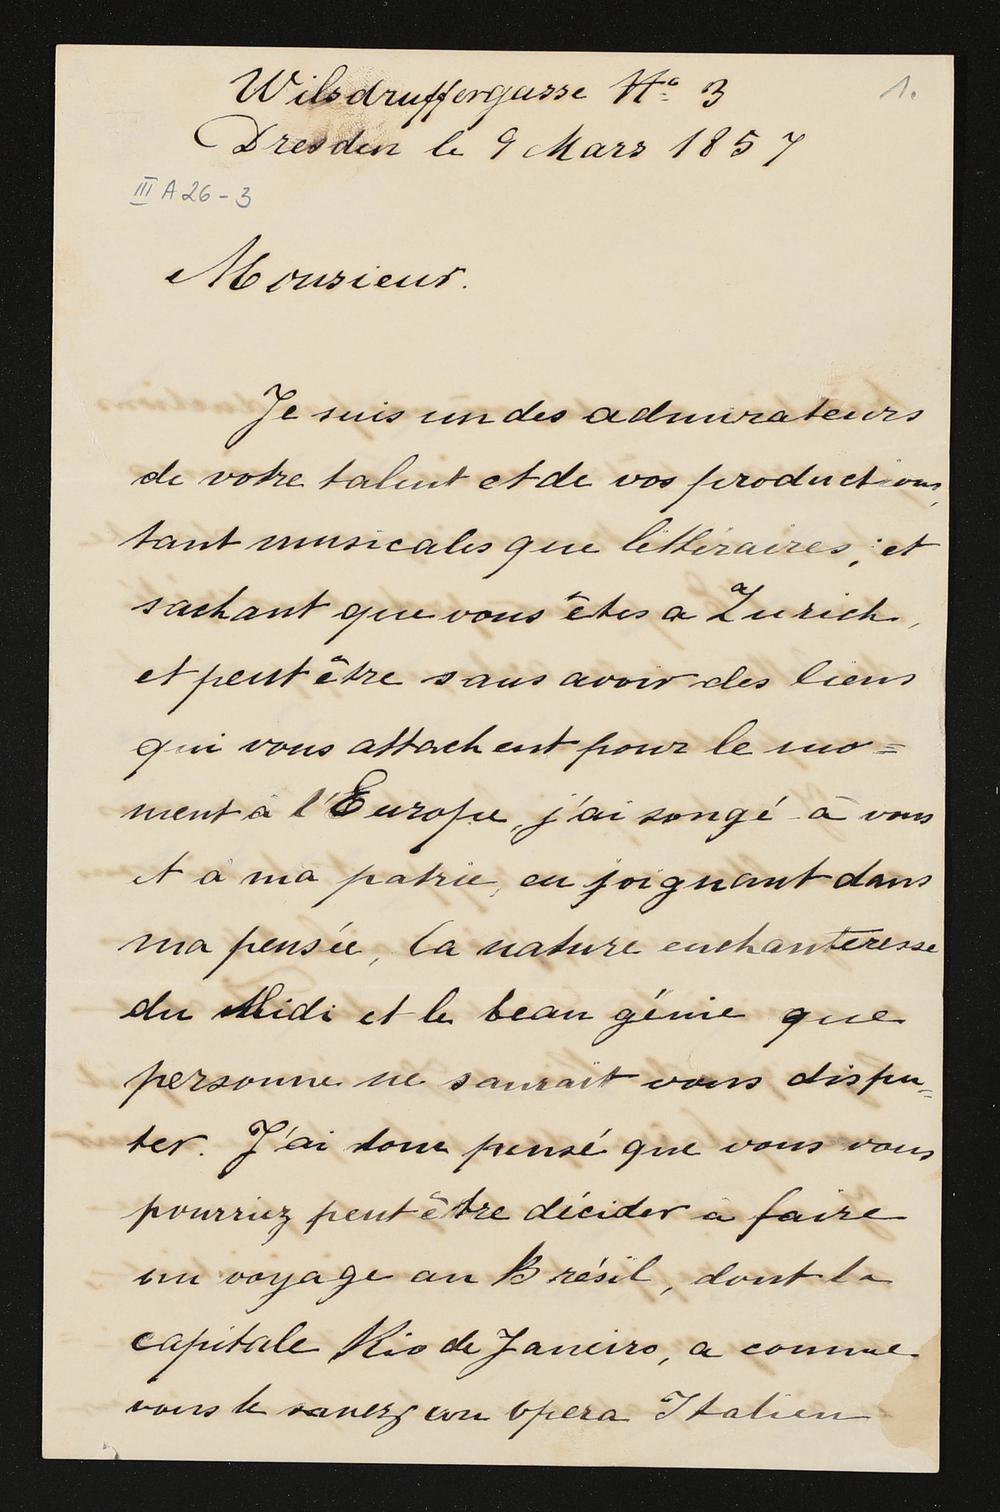 Wilsdruffergasse No 3
1.
Dresden le 9 Mars 1857
III A 26 - 3
Monsieur.
Je suis un des admirateurs
de votre talent et de vos productions,
tant musicales que littéraires; et
sachant que vous êtes a Zurich,
et peut être sans avoir des liens
qui vous attachent pour le mo=
ment à l'Europe, j'ai songé à vous
et à ma patrie, en joignant dans
ma pensée, la nature enchanteresse
du Midi et le beau génie que
personne ne saurait vous dispu=
ter. J'ai donc pensé que vous vous
pourriez peut être décider à faire
un voyage au Brésil, dont la
capitale Rio de Janeiro, a comme
vous le savez un opera Italien